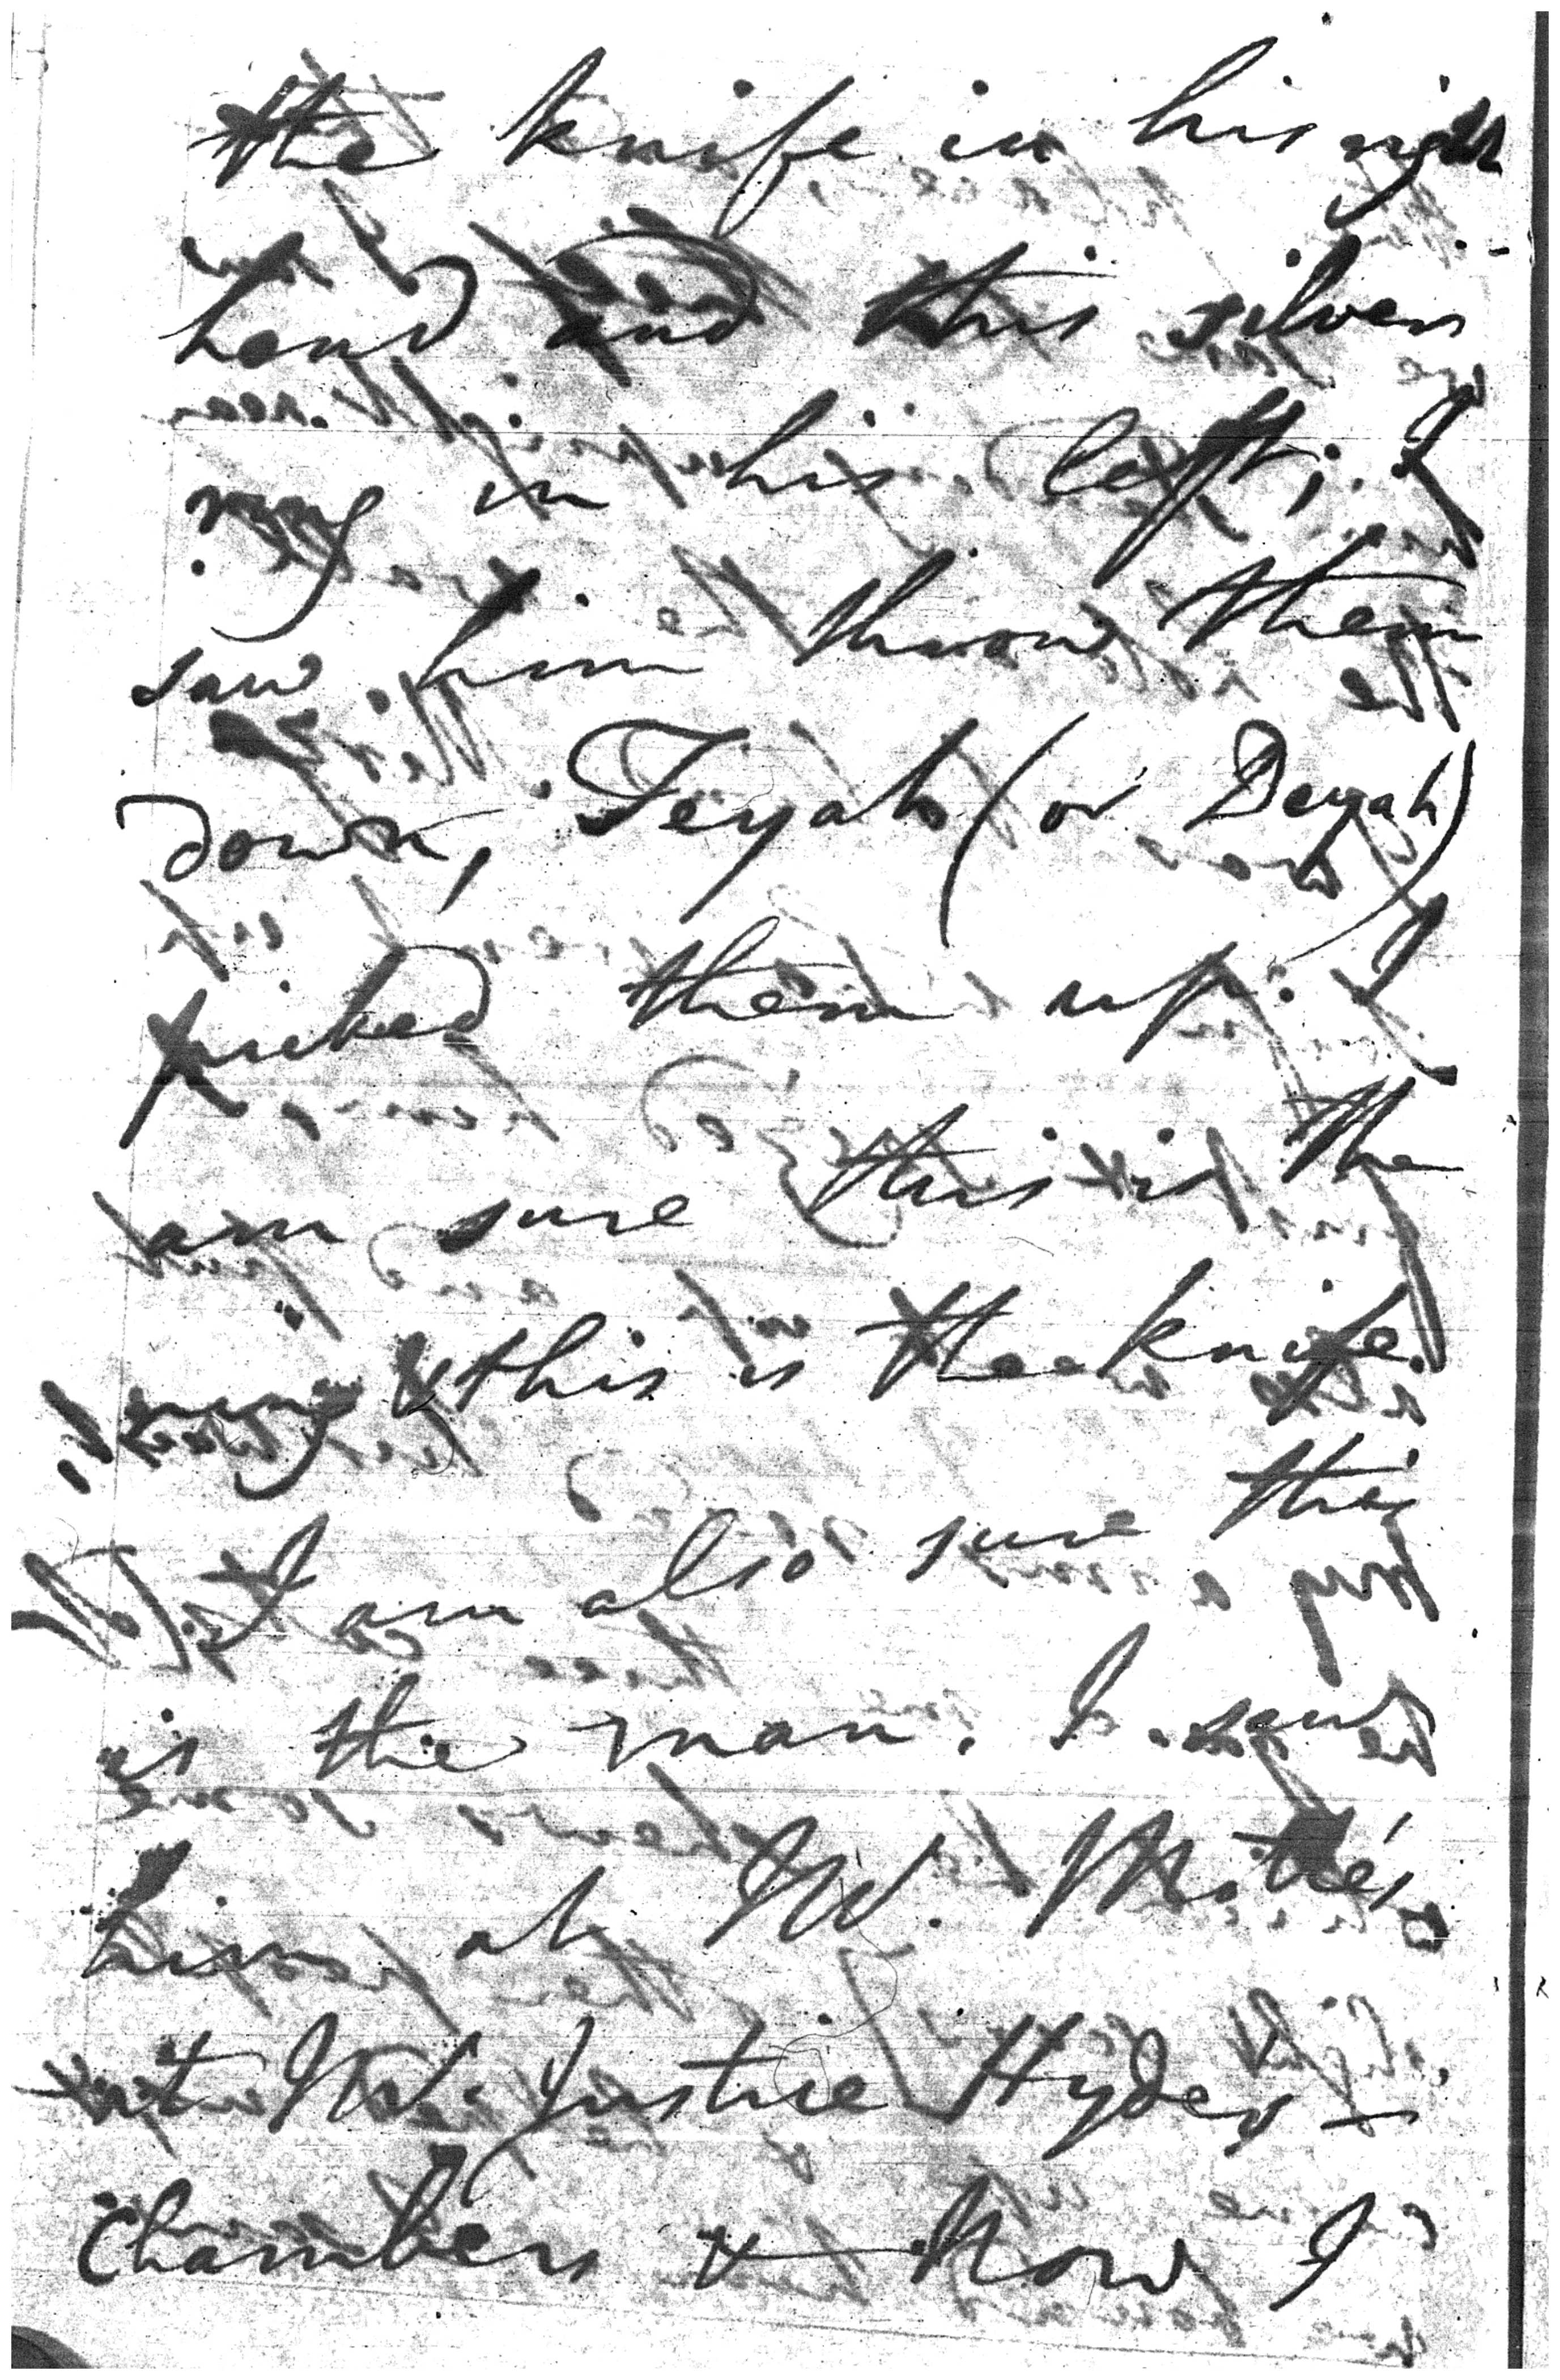 the knife in his right
hand and this silver
ring in his left; I
saw him throw them
down, Teyah (or Deyah)
picked them up: I
am sure this is the
ring & this is the knife.
I am also sure this
is the man. I saw
him at Mr. Motte's
at Mr. Justice Hydes
Chambers & Now I